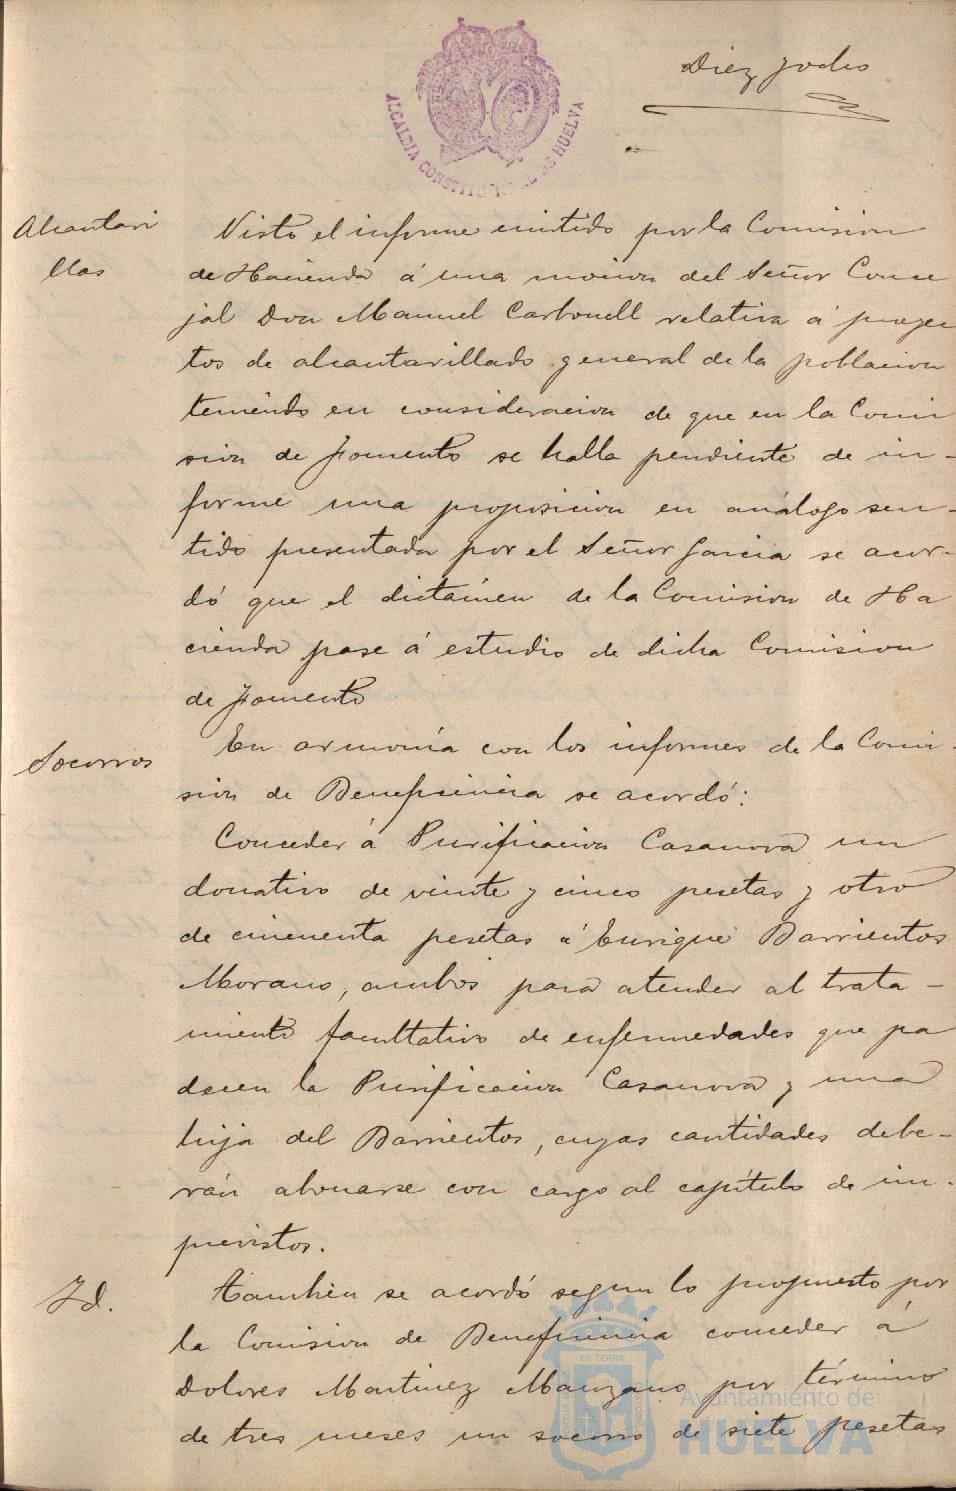 Diez y ocho
ALCALDIA CONSTITUCIONAL DE HUELVA
Alcantari
llas
Visto el informe emitido por la Comision
de Hacienda á una mocion del Señor Conce
jal Don Manuel Carbonell relativa á proyec
tos de alcantarillado general de la poblacion
teniendo en consideracion de que en la Comi
sion de Fomento se halla pendiente de in-
forme una proposicion en análogo sen-
tido presentada por el Señor Garcia se acor-
dó que el dictámen de la Comision de Ha
cienda pase á estudio de dicha Comision
de Fomento
Socorros
En armonía con los informes de la Comi-
sion de Beneficencia se acordó:
Conceder á Purificacion Casanova un
donativo de veinte y cinco pesetas y otro
de cincuenta pesetas á Enrique Barrientos
Morano, ambos para atender al trata-
miento facultativo de enfermedades que pa
decen la Purificacion Casanova y una
hija del Barrientos, cuyas cantidades debe-
rán abonarse con cargo al capítulo de im-
previstos.
Id.
Tambien se acordó segun lo propuesto por
la Comision de Beneficencia conceder á
Dolores Martinez Manzano por término
de tres meses un socorro de siete pesetas
Ayuntamiento de
HUELVA